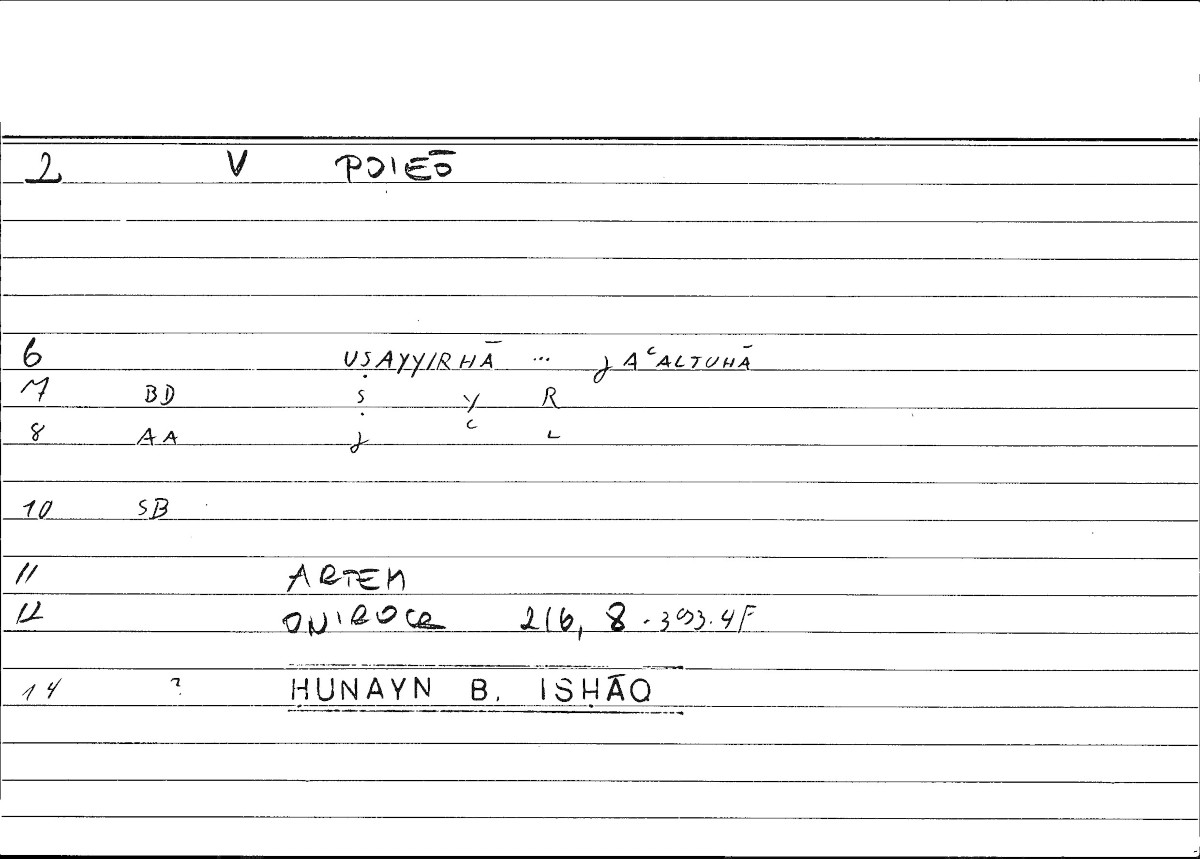 2 V POIEŌ
6 UṢAYYIRHĀ ... J AʿALTUHĀ
7 BD Ṣ Y R
8 AA J ʿ L
10 SB
11 ARTEM
12 ONIROCR 216, 8 - 393.4F
14 ? ḤUNAYN B. ISḤĀQ